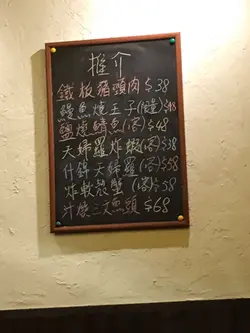 推介
鐵板豬頸肉$38
鰻魚燒玉子(位)$48
鹽燒鯖魚(客)$48
天婦羅炸蝦(客)$38
什錦天婦羅(客)$58
炸軟殼蟹(客)$38
汁燒三文魚頭$68